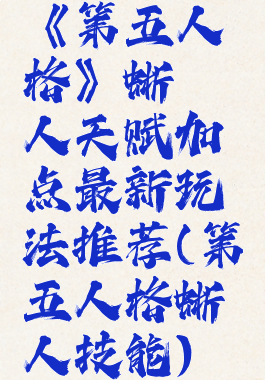 《第五人
格》蜥
人天赋加
点最新玩
法推荐(第
五人格蜥
人技能)